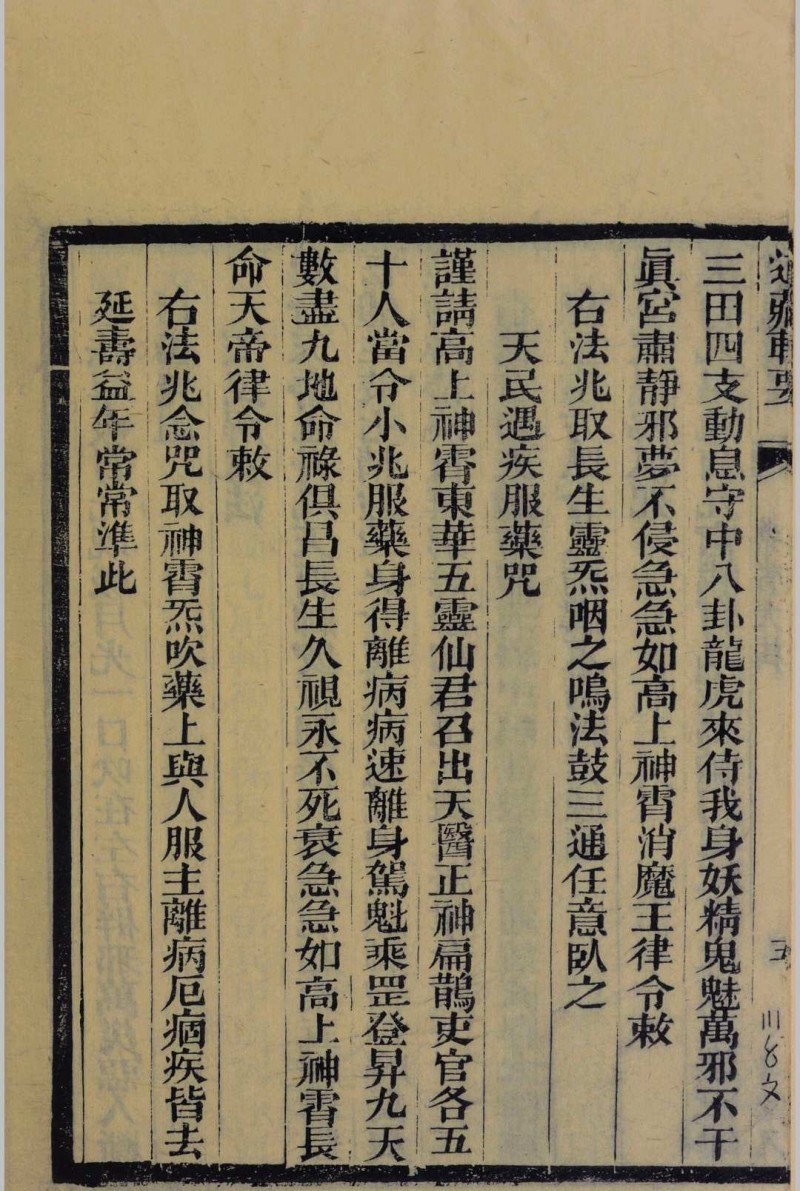 道藏輯要
三田四支動息守中八卦龍虎來侍我身妖精鬼魅萬邪不干
眞宮肅靜邪夢不侵急急如高上神霄消魔王律令敕
右法兆取長生靈炁咽之鳴法鼓三通任意臥之
天民遇疾服藥咒
謹請高上神霄東華五靈仙君召出天醫正神扁鵲吏官各五
十人當令小兆服藥身得離病病速離身駕魁乘罡登昇九天
數盡九地命祿俱昌長生久視永不死衰急急如高上神霄長
命天帝律令敕
右法兆念咒取神霄炁吹藥上與人服主離病厄痼疾皆去
延壽益年常常準此